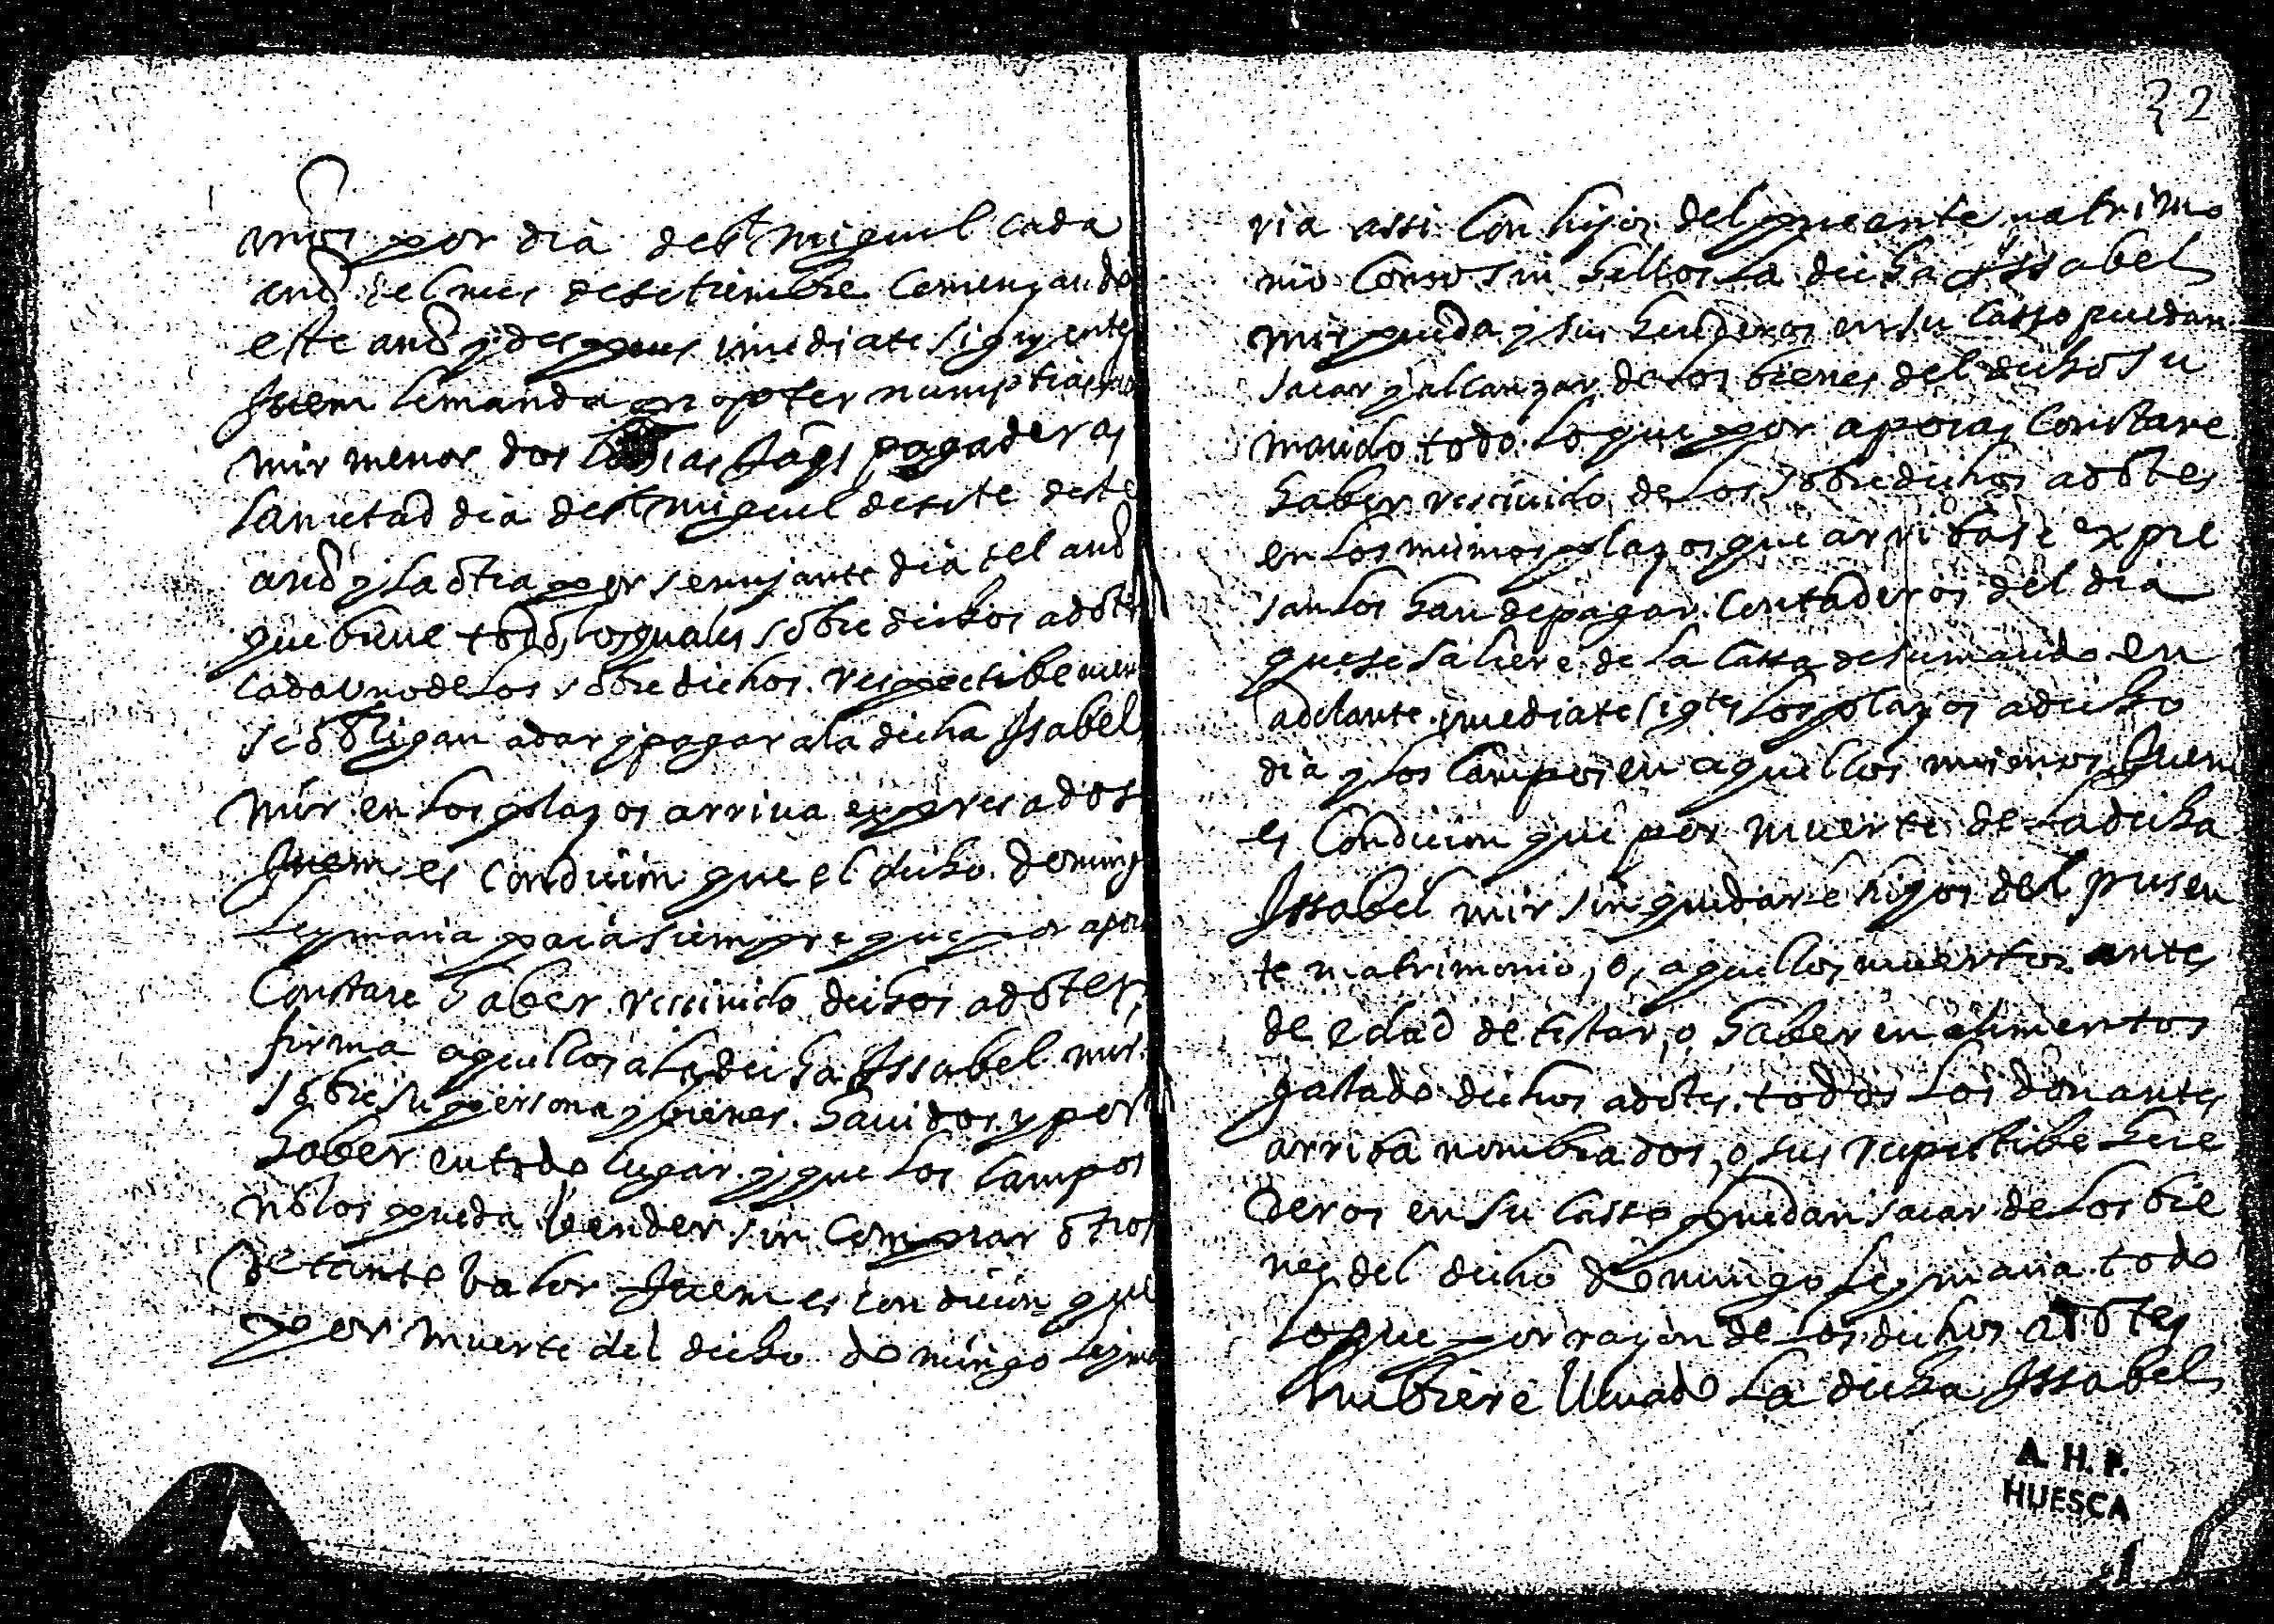 por dia de St miguel cada
año del mes de setiembre comenzando
este año y despues imediate siguientes
Item le manda propter numptias
mir menor dos jaqs pagaderas
la mitad dia de St miguel de sete deste
año y la otra por semejante dia del año
que biene todos los quales sobre dichos adotes
cada uno de los sobre dichos respectibemen
se obligan a dar y pagar a la dicha Isabel
mir en los plazos arriva expresados
Item es condicion que el dicho doming
Leymaria para siempre que por apoca
Constare haber rescivido dichos adotes
firma aquellos a la dicha Issabel mir
sobre su persona y bienes havidos y por
haber en todo lugar y que los campos
no los pueda bender sin comprar otros
de tanto balor Item es condicion que
por muerte del dicho domingo Leyma
32
ria assi con hijos del presente matrimo
nio como sin hellos la dicha Issabel
mir pueda y sus herederos en su casso puedan
sacar y alcanzar de los bienes del dicho su
marido todo lo que por apocas constare
haber rescivido de los sobre dichos adotes
en los mismos plazos que arriba se expre
san los han de pagar contaderos del dia
que se saliere de la cassa de su marido en
adelante imediate sigtes los plazos a dicho
dia y los campos en aquellos mismos Item
es condicion que por muerte de la dicha
Issabel mir sin quedar e hijos del presen
te matrimonio, o, aquellos muertos antes
de edad de testar, o haber en alimentos
gastado dichos adotes todos los donantes
arriba nombrados, o, sus respectibe here
deros en su casso puedan sacar de los bie
nes del dicho domingo Leymaria todo
lo que por razon de los dichos adotes
hubiere llevado la dicha Issabel
A. H. P.
HUESCA